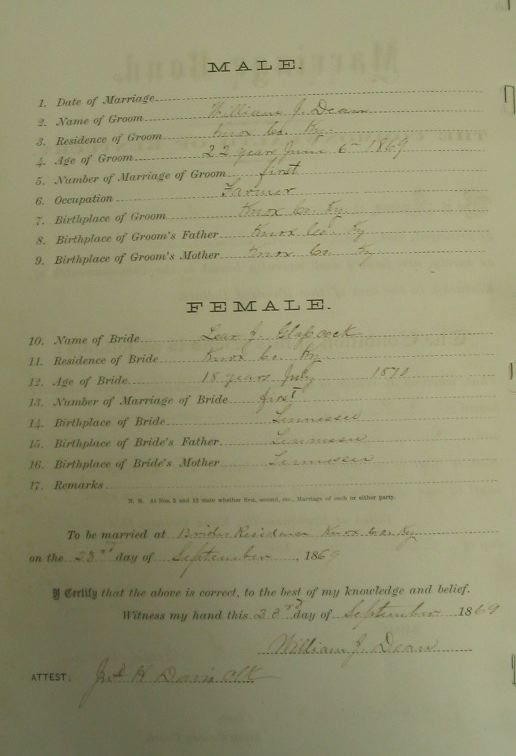 MALE.
1. Date of Marriage
2. Name of Groom William J. Dean
3. Residence of Groom Knox Co. Ky.
4. Age of Groom 22 years June 6th 1869
5. Number of Marriage of Groom first
6. Occupation Farmer
7. Birthplace of Groom Knox Co. Ky
8. Birthplace of Groom's Father Knox Co. Ky
9. Birthplace of Groom's Mother Knox Co. Ky
FEMALE.
10. Name of Bride J.
11. Residence of Bride Knox Co. Ky
12. Age of Bride 18 years July 1870
13. Number of Marriage of Bride first
14. Birthplace of Bride Tennessee
15. Birthplace of Bride's Father Tennessee
16. Birthplace of Bride's Mother Tennessee
17. Remarks
N. B. At Nos. 5 and 13 state whether first, second, etc., Marriage of each or either party.
To be married at Brides Residence Knox Co. Ky
on the 23rd day of September, 1869
I Certify that the above is correct, to the best of my knowledge and belief.
Witness my hand this 23rd day of September 1869
William J. Dean
ATTEST: Davis Clk